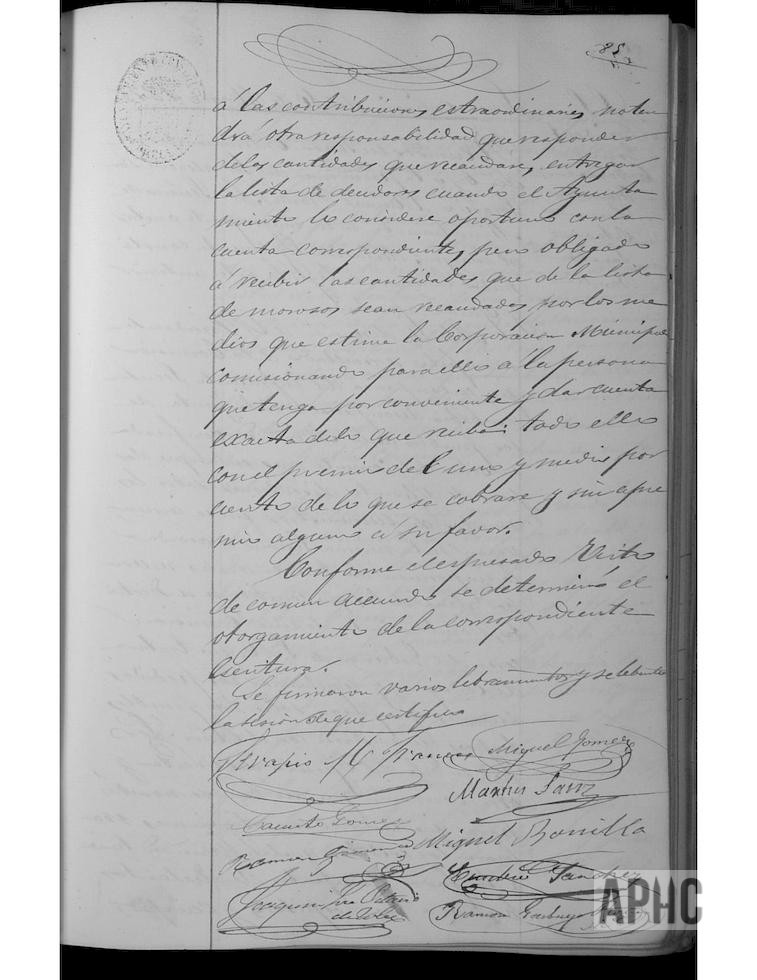 85
á las contribuciones estraordinarias no ten
drá otra responsabilidad que responder
de las cantidades que recaudare, entregar
la lista de deudores cuando el Ayunta
miento lo considere oportuno con la
cuenta correspondiente, pero obligado
á recibir las cantidades que de la lista
de morosos sean recaudadas por los me
dios que estime la Corporacion Municipal
comisionando para ello á la persona
que tenga por conveniente y dar cuenta
exacta de lo que reciba: todo ello
con el premio del uno y medio por
ciento de lo que se cobrare y sin apre
mio alguno á su favor.
Conforme el espresado
de comun acuerdo se determinó el
otorgamiento de la correspondiente
Escritura.
Se firmaron varios libramientos y se levantó
la sesion de que certifico
Miguel Gomez
Martin Sanz
Jacinto Gomez
Miguel Bonilla
Ramon Gimenez
Sanchez
Joaquin
Ramon
APHC